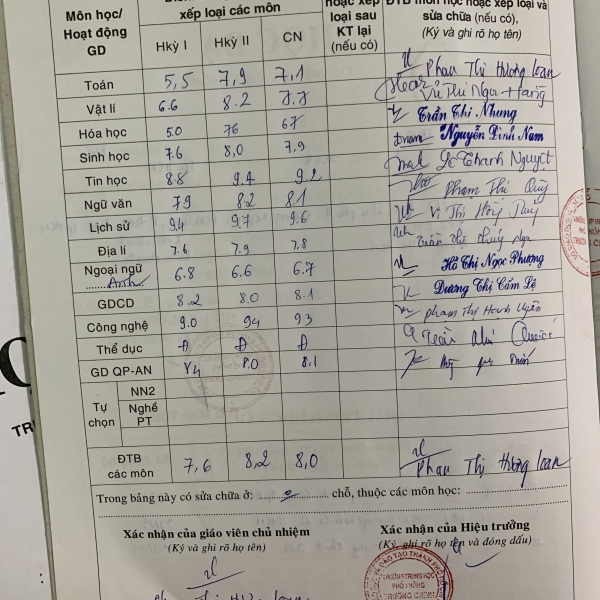 Môn học/ Hoạt động GD
xếp loại các môn
hoặc xếp loại sau KT lại (nếu có)
ĐTB môn học hoặc xếp loại và sửa chữa (nếu có),
(Ký và ghi rõ họ tên)
Hkỳ I Hkỳ II CN
Toán 5,5 7,9 7,1 Phan Thị Hương Loan
Vật lí 6.6 8.2 7.7
Hóa học 5.0 76 67 Trần Thị Nhung
Sinh học 7.6 8,0 7,9 Nguyễn Đình Nam
Tin học 8.8 9.4 9.2 Thanh Nguyệt
Ngữ văn 79 8.2 8.1 Phạm Thị
Lịch sử 9.4 9.7 9.6 Thị Hồng
Địa lí 7.6 7.9 7.8 Trần Thị Thúy Nga
Ngoại ngữ Anh 6.8 6.6 6.7 Hồ Thị Ngọc Phượng
GDCD 8.2 8.0 8.1 Dương Thị Cẩm Lệ
Công nghệ 9.0 94 93 Phạm Thị Hạnh
Thể dục Đ Đ Đ
GD QP-AN 8.0 8.1
Tự chọn
NN2
Nghề PT
ĐTB các môn 7,6 8,2 8,0 Phan Thị Hương Loan
Trong bảng này có sửa chữa ở: ......0...... chỗ, thuộc các môn học: ......
Xác nhận của giáo viên chủ nhiệm
(Ký và ghi rõ họ tên)
Xác nhận của Hiệu trưởng
(Ký, ghi rõ họ tên và đóng dấu)